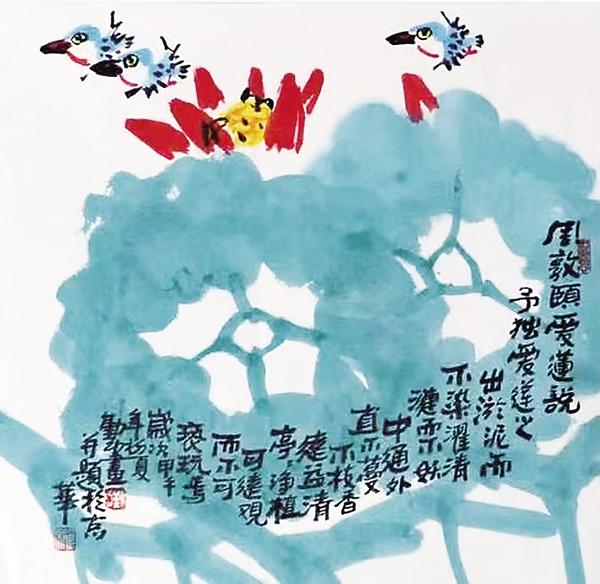 周敦頤愛蓮説
予独愛蓮之
出淤泥而
不染濯清
漣而不妖
中通外
直不蔓
不枝香
遠益清
亭々净植
可遠观
而不可
褻玩焉
歲次甲午
年初夏
畫
并題於京
華